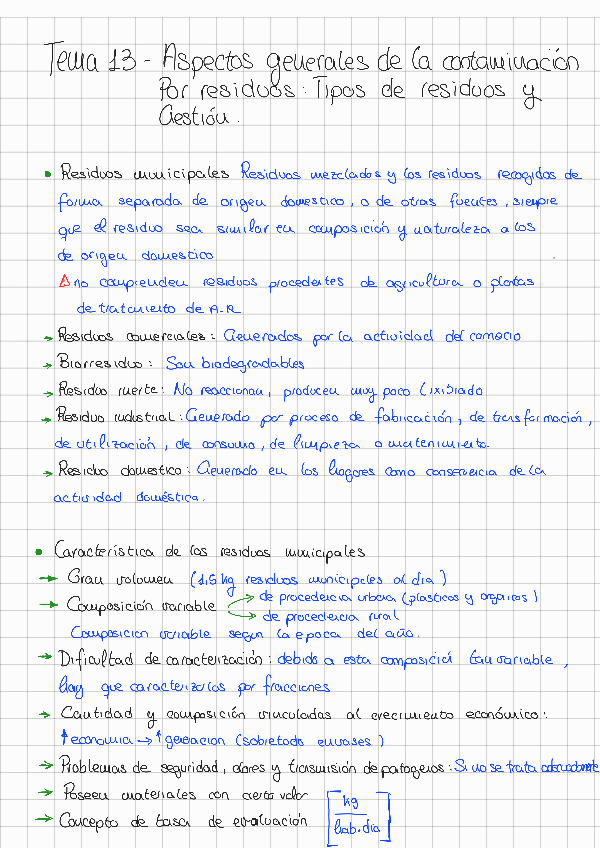 Tema 13 - Aspectos generales de la contaminación
Por residuos: Tipos de residuos y
Gestión.
• Residuos municipales Residuos mezclados y los residuos recogidos de
forma separada de origen domestico, o de otras fuentes, siempre
que el residuo sea similar en composición y naturaleza a los
de origen domestico
⚠ no comprenden residuos procedentes de agricultura o plantas
de tratamiento de A.R
→ Residuos comerciales: Generados por la actividad del comercio
→ Biorresiduo: Son biodegradables
→ Residuo inerte: No reaccionan, producen muy poco lixiviado
→ Residuo industrial: Generado por proceso de fabricación, de transformación,
de utilización, de consumo, de limpieza o mantenimiento.
→ Residuo domestico: Generado en los hogares como consecuencia de la
actividad doméstica.
• Característica de los residuos municipales
→ Gran volumen (1,5 kg residuos municipales al dia)
→ Composición variable → de procedencia urbana (plasticos y organicos)
→ de procedencia rural
Composicion variable segun la epoca del año.
→ Dificultad de caracterización: debido a esta composición tan variable,
hay que caracterizarlos por fracciones
→ Cantidad y composición vinculadas al crecimiento económico:
↑ economia → ↑ generacion (sobretodo envases)
→ Problemas de seguridad, olores y transmisión de patogenos: Si no se trata adecuadamente
→ Poseen materiales con cierto valor
→ Concepto de tasa de evaluación [kg / hab·dia]